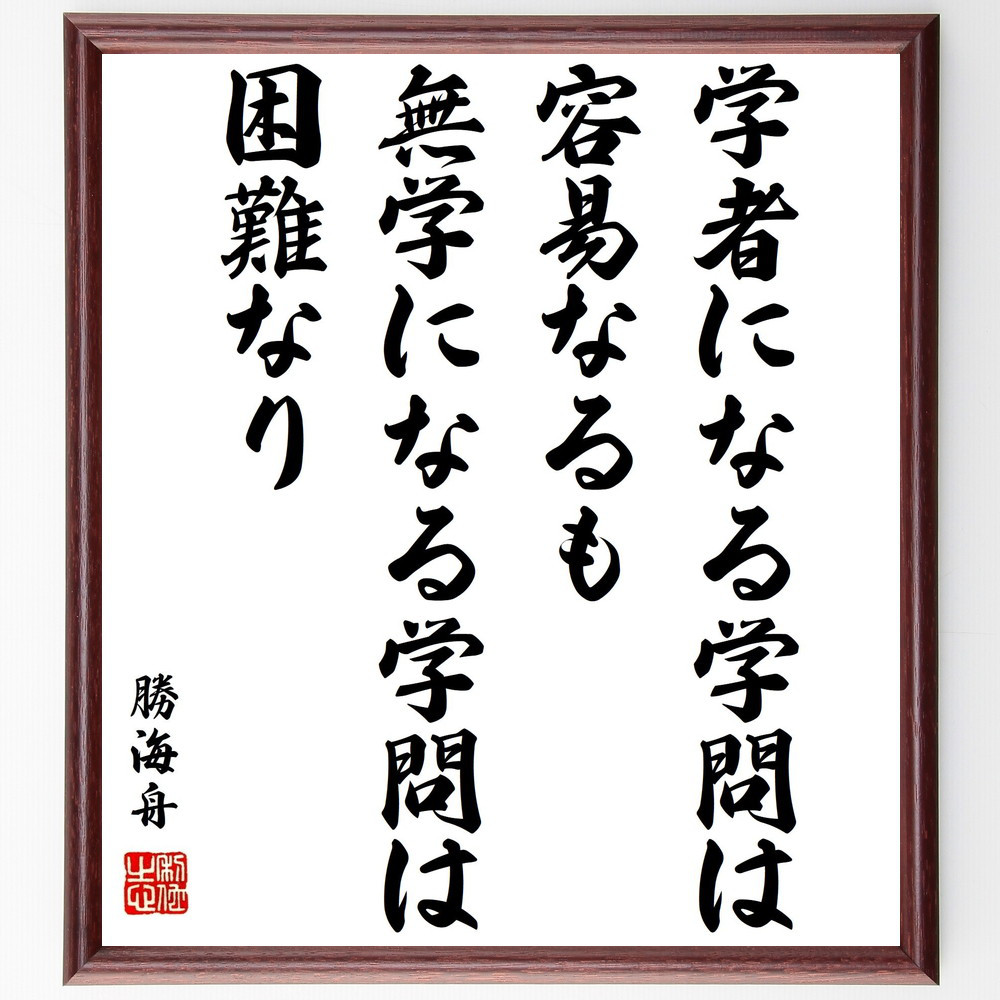 学者になる学問は
容易なるも
無学になる学問は
困難なり
勝海舟